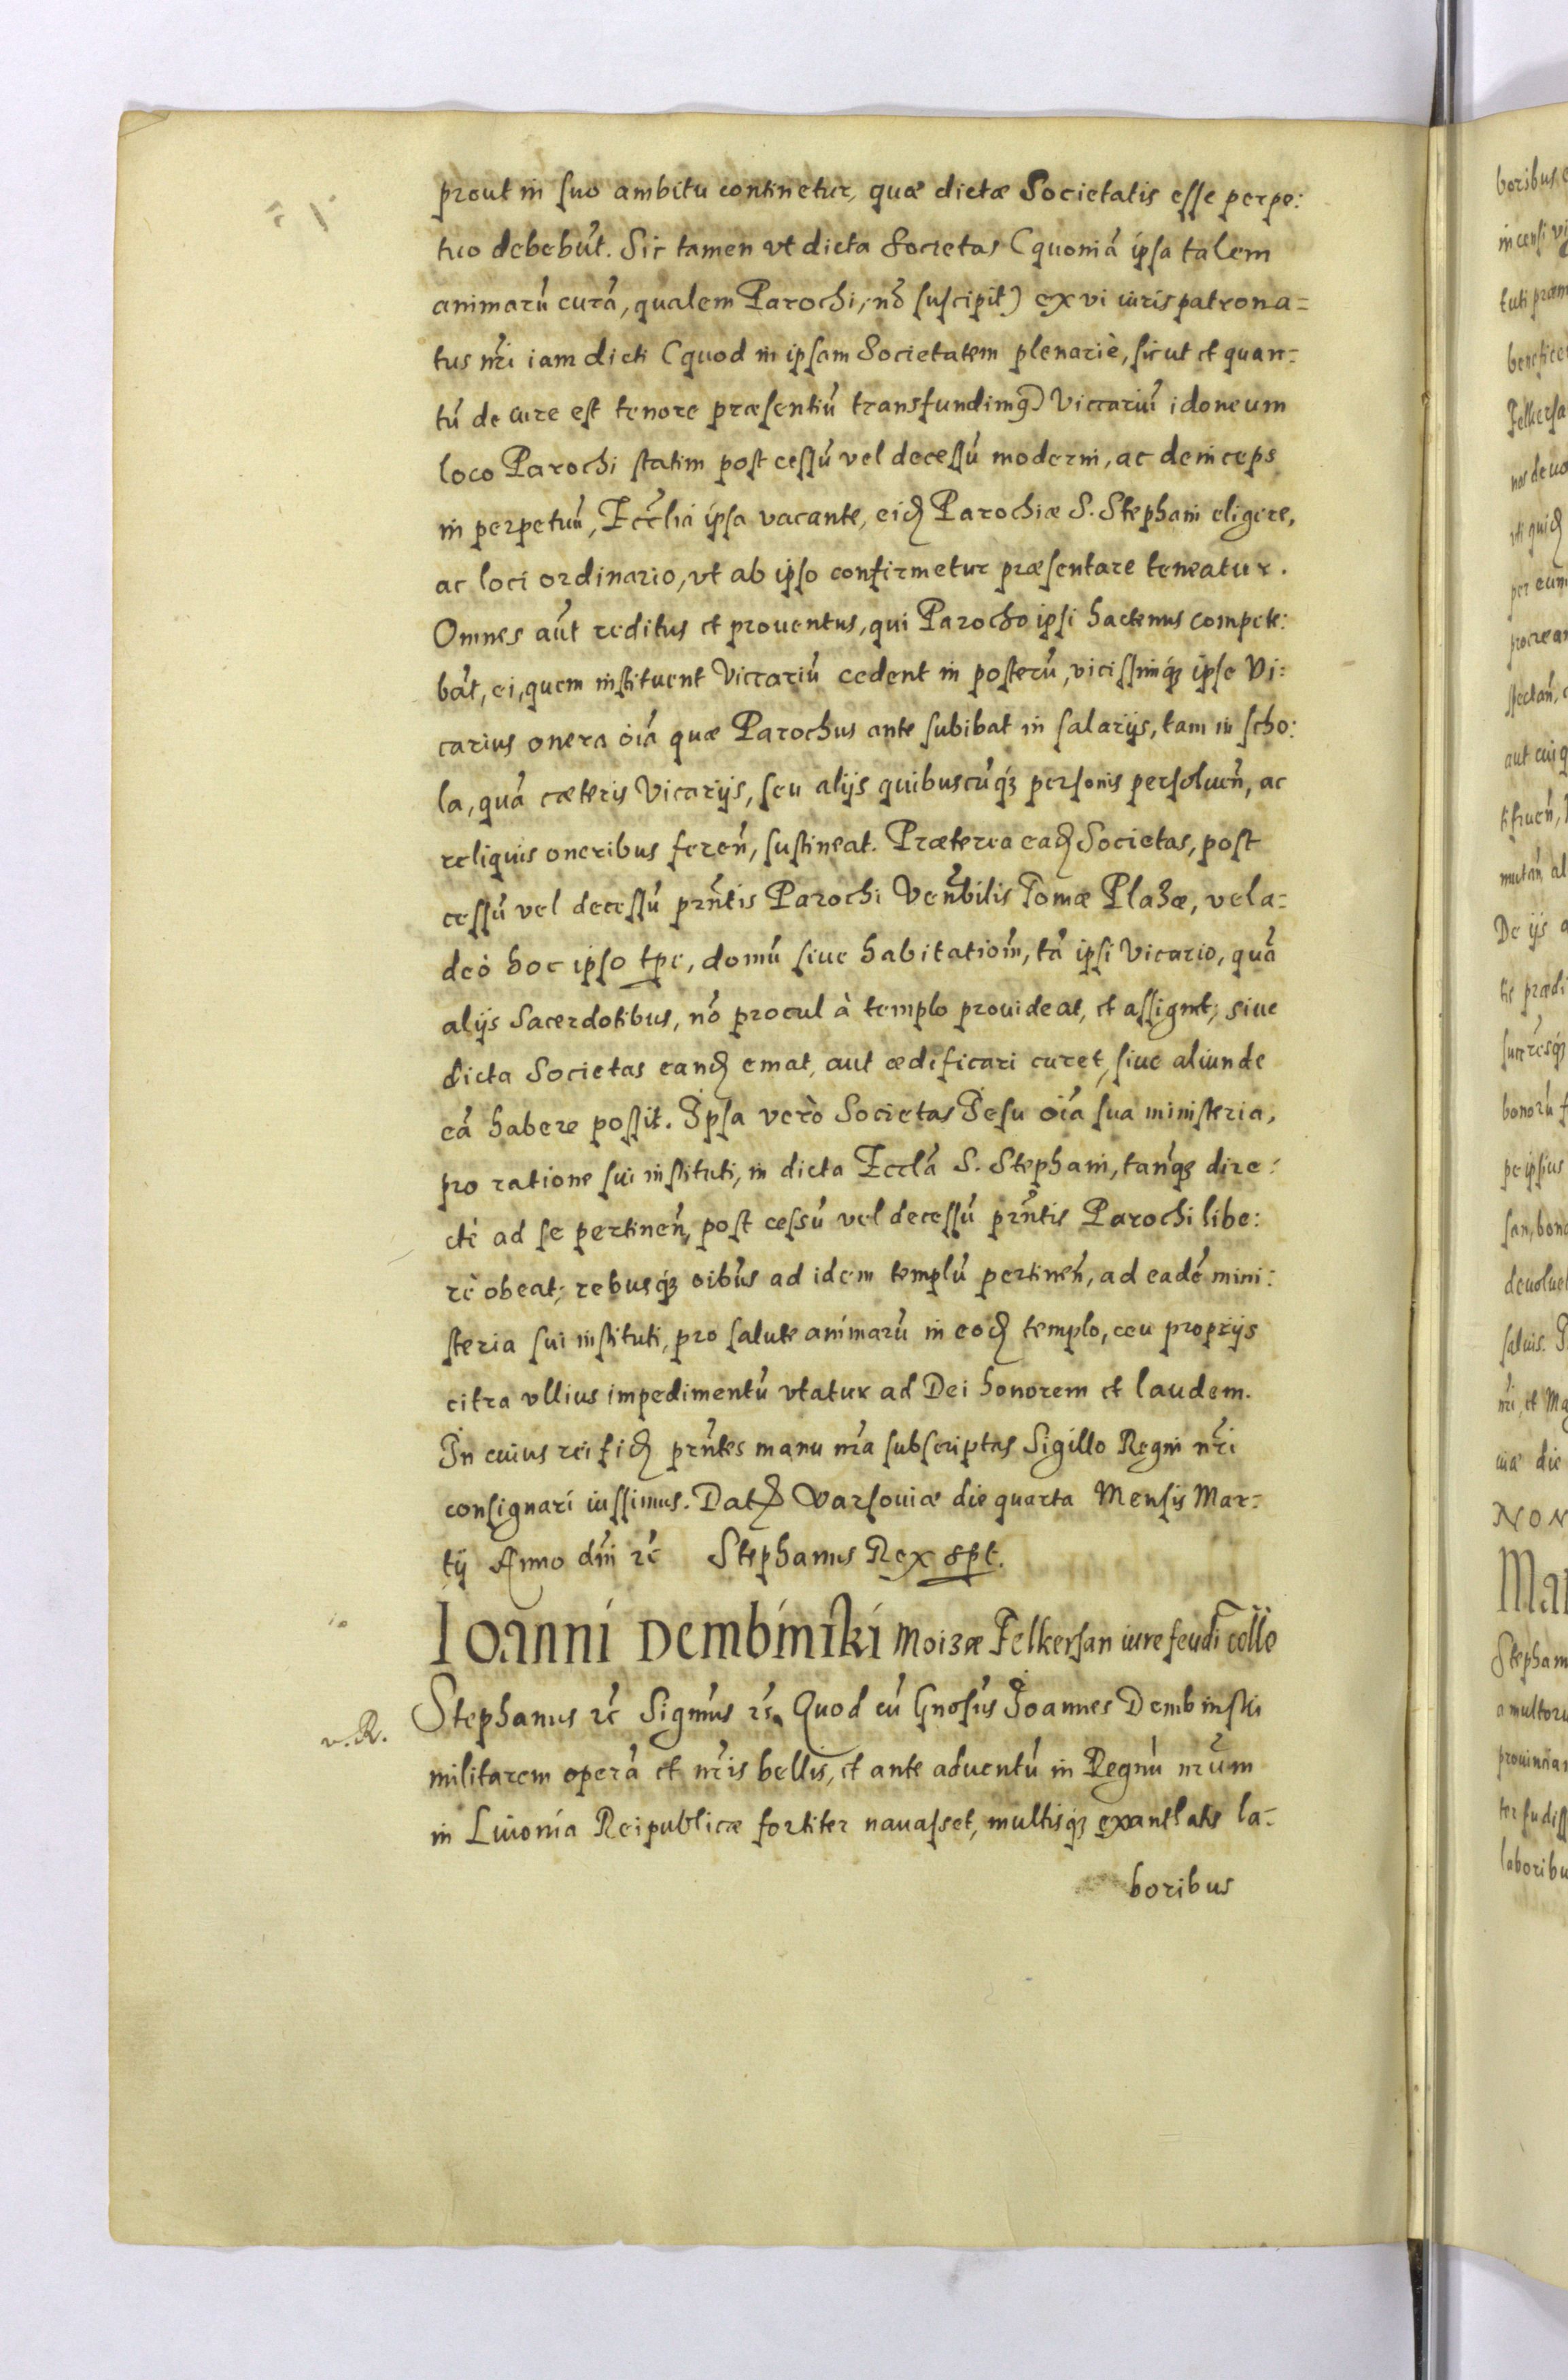 prout in suo ambitu continetur, quæ dictæ Societatis esse perpe:
tuo debebũt. Sic tamen vt dicta Societas (quoniã ipsa talem
animarũ curã, qualem Parochi, nõ suscipit) ex vi iuris patrona=
tus nr̃i iam dicti (quod in ipsam Societatem plenariè, sicut et quan=
tũ de iure est tenore præsentiũ transfundimꝰ) Vicariũ idoneum
loco Parochi statim post cessũ vel decessũ moderni, ac deinceps
in perpetuũ, Eccl̃ia ipsa vacante, eid̃ Parochiæ S. Stephani eligere,
ac loci ordinario, vt ab ipso confirmetur præsentare teneatur.
Omnes aũt reditus et prouentus, qui Parocho ipsi hactenus compete:
bãt, ei, quem instituent Vicariũ cedent in posterũ, vicissimq́ꝫ ipse Vi:
carius onera oĩa quæ Parochus ante subibat in salarijs, tam in scho:
la, quã cæteris Vicarijs, seu alijs quibuscũq́ꝫ personis persoluen̄, ac
reliquis oneribus feren̄, sustineat. Præterea ead̃ Societas, post
cessũ vel decessũ prñtis Parochi Veñbilis Tomæ Plazæ, vel a=
deò hoc ipso tp̱e, domũ siue habitatioñ, tã ipsi Vicario, quã
alijs Sacerdotibus, nõ procul à templo prouideat, et assignet; siue
dicta Societas eand̃ emat, aut ædificari curet, siue aliunde
eã habere possit. Ipsa verò Societas Iesu oĩa sua ministeria,
pro ratione sui instituti, in dicta Eccl̃a S. Stephani, tanq̃ꝫ dire:
ctè ad se pertinen̄, post cessũ vel decessũ prñtis Parochi libe:
rè obeat; rebusq́ꝫ oĩbus ad idem templũ pertinen̄, ad eadẽ mini:
steria sui instituti, pro salute animarũ in eod̃ templo, ceu proprijs
citra vllius impedimentũ vtatur ad Dei honorem et laudem.
In cuius rei fid̃ prñtes manu nr̃a subscriptas Sigillo Regni nr̃i
consignari iussimus. Dat̃ Varsouiæ die quarta Mensis Mar=
tij Anno dñi ꝛc̃ Stephanus Rex spt.
Ioanni Dembinski Moizæ Felkersan iure feudi collõ
v. R.
Stephanus ꝛc̃ Sigñus ꝛc̃. Quod cũ Gnosũs Ioannes Dembinski
militarem operã et nr̃is bellis, et ante aduentũ in Regnũ nr̃um
in Liuonia Reipublicæ fortiter nauasset, multisq́ꝫ exantlatis la=
boribus